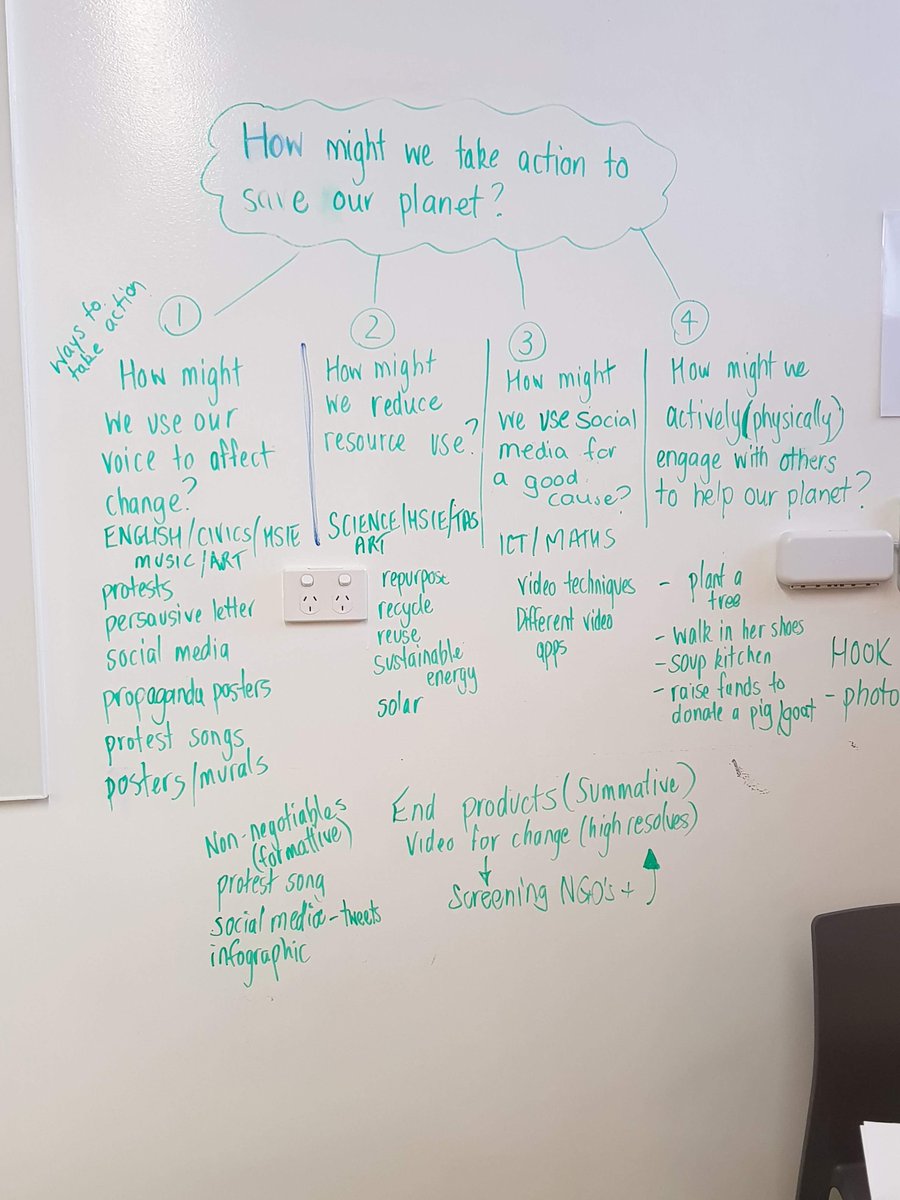 How might we take action to
save our planet?
Ways to
take action
1
How might
we use our
voice to affect
change?
ENGLISH/CIVICS/HSIE
MUSIC/ART
protests
persausive letter
social media
propaganda posters
protest songs
posters/murals
2
How might
we reduce
resource use?
SCIENCE/HSIE/TAS
ART
repurpose
recycle
reuse
sustainable
energy
solar
3
How might
we use social
media for
a good
cause?
ICT/MATHS
video techniques
Different video
apps
4
How might we
actively (physically)
engage with others
to help our planet?
- plant a
tree
- walk in her shoes
- soup kitchen
- raise funds to
donate a pig/goat
HOOK
- photo
Non-negotiables
(formative)
protest song
social media - tweets
infographic
End products (Summative)
Video for change (high resolves)
Screening NGO's +